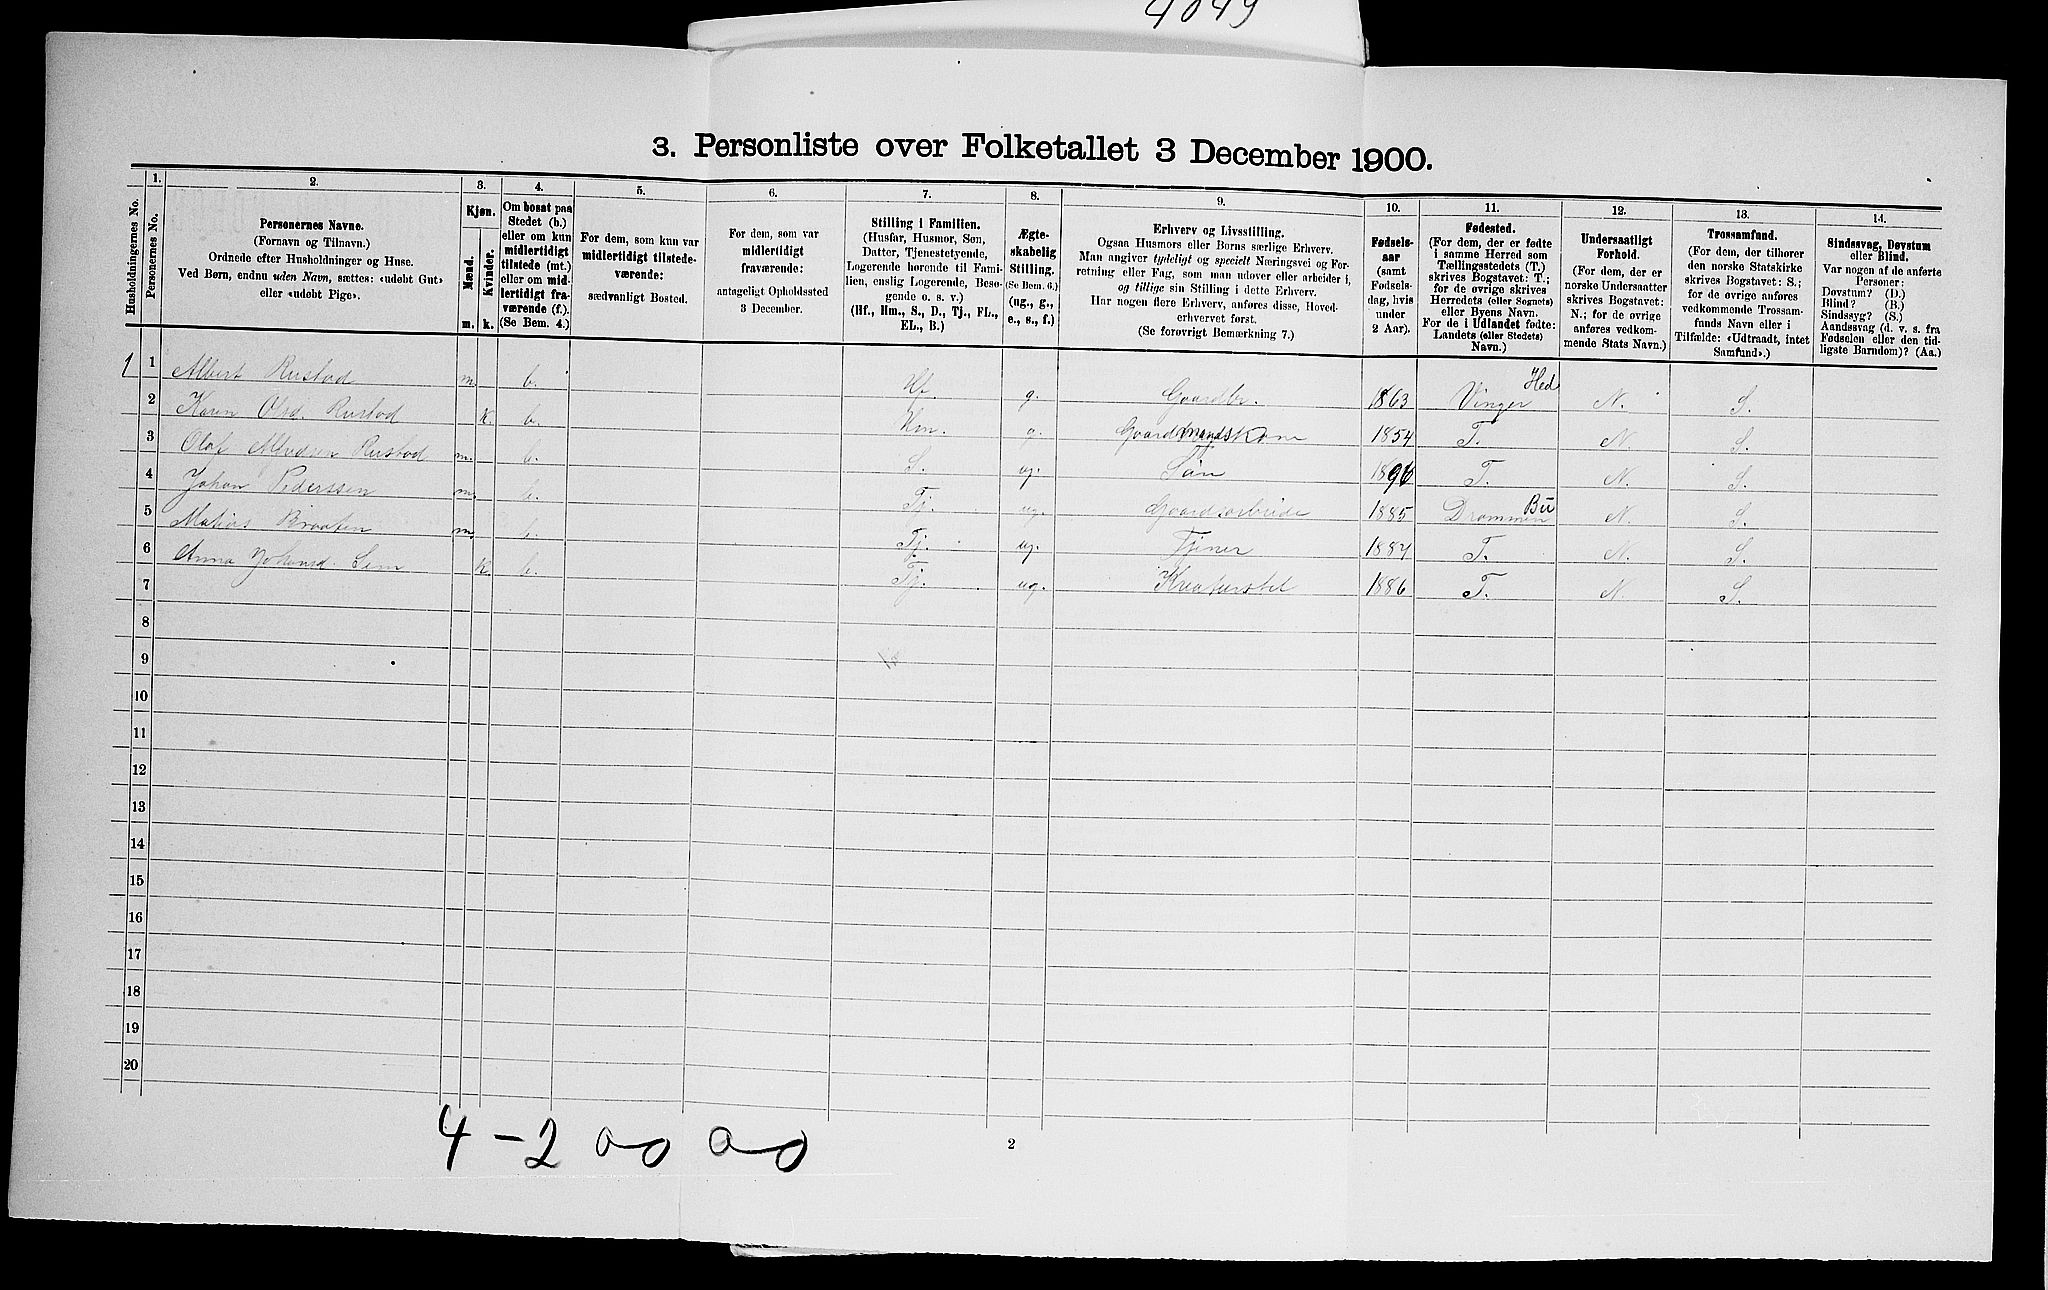 4049
3. Personliste over Folketallet 3 December 1900.
Husholdningernes No.
1.
Personernes No.
2.
Personernes Navne.
(Fornavn og Tilnavn.)
Ordnede efter Husholdninger og Huse.
Ved Børn, endnu uden Navn, sættes: «udøbt Gut»
eller «udøbt Pige».
3.
Kjøn.
Mænd.
Kvinder.
m. k.
4.
Om bosat paa
Stedet (b.)
eller om kun
midlertidigt
tilstede (mt.)
eller om mid-
lertidigt fra-
værende (f.).
(Se Bem. 4.)
5.
For dem, som kun var
midlertidigt tilstede-
værende:
sædvanligt Bosted.
6.
For dem, som var
midlertidigt
fraværende:
antageligt Opholdssted
3 December.
7.
Stilling i Familien.
(Husfar, Husmor, Søn,
Datter, Tjenestetyende,
Logerende hørende til Fami-
lien, enslig Logerende, Besø-
gende o. s. v.)
(Hf., Hm., S., D., Tj., FL.,
EL., B.)
8.
Ægte-
skabelig
Stilling.
(Se Bem. 6.)
(ug., g.,
e., s., f.)
9.
Erhverv og Livsstilling.
Ogsaa Husmors eller Børns særlige Erhverv.
Man angiver tydeligt og specielt Næringsvei og For-
retning eller Fag, som man udøver eller arbeider i,
og tillige sin Stilling i dette Erhverv.
Har nogen flere Erhverv, anføres disse, Hoved-
erhvervet først.
(Se forøvrigt Bemærkning 7.)
10.
Fødsels-
aar
(samt
Fødsels-
dag, hvis
under
2 Aar).
11.
Fødested.
(For dem, der er fødte
i samme Herred som
Tællingsstedets (T.)
skrives Bogstavet: T.;
for de øvrige skrives
Herredets (eller Sognets)
eller Byens Navn.
For de i Udlandet fødte:
Landets (eller Stedets)
Navn.)
12.
Undersaatligt
Forhold.
(For dem, der er
norske Undersaatter
skrives Bogstavet:
N.; for de øvrige
anføres vedkom-
mende Stats Navn.)
13.
Trossamfund.
(For dem, der tilhører
den norske Statskirke
skrives Bogstavet: S.;
for de øvrige anføres
vedkommende Trossam-
funds Navn eller i
Tilfælde: «Udtraadt, intet
Samfund».)
14.
Sindssvag, Døvstum
eller Blind.
Var nogen af de anførte
Personer:
Døvstum? (D.)
Blind? (B.)
Sindssyg? (S.)
Aandssvag (d. v. s. fra
Fødselen eller den tid-
ligste Barndom)? (Aa.)
1 1 Albert Rustad m. b. Hf. g. Gaardbr. 1863 Vinger Hed N. S.
2 Karen Olsd. Rustad k. b. Hm. g. Gaardmandskone 1854 T. N. S.
3 Olaf Albertsen Rustad m. b. S. ug. Søn 1896 T. N. S.
4 Johan Pederssen m. b. Tj. ug. Gaardsarbeide 1885 Drammen Bu N. S.
5 Matias Braaten m. b. Tj. ug. Tjener 1884 T. N. S.
6 Anna Johansd. Lien k. b. Tj. ug. Kreaturstel 1886 T. N. S.
7
8
9
10
11
12
13
14
15
16
17
18
19
20
4-2 00 00
2